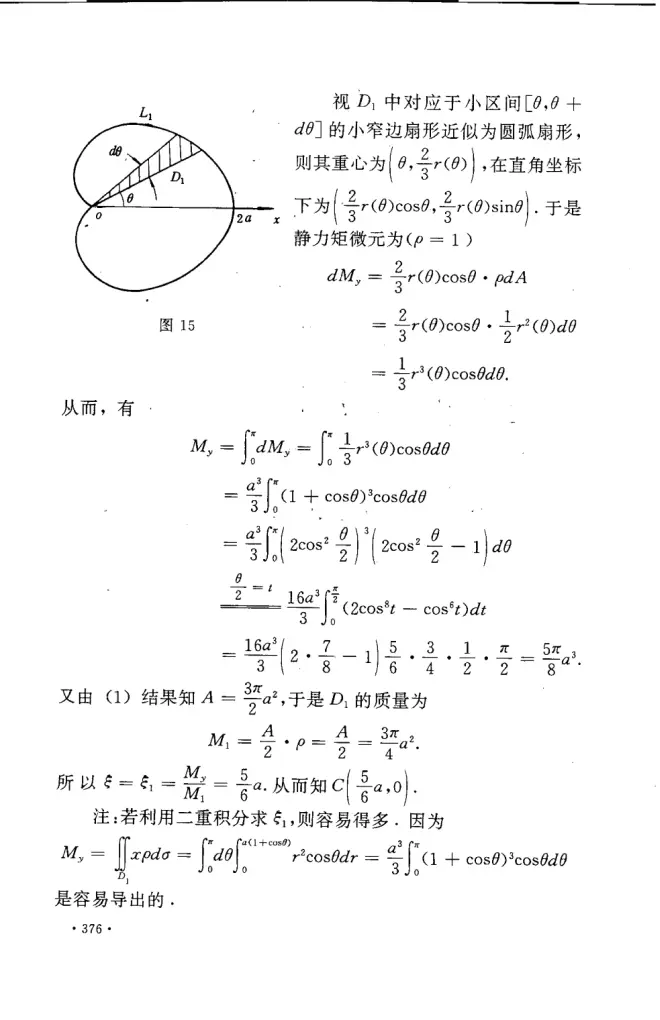 L₁
dθ
D₁
θ
o
2a
x
图 15
视 D₁ 中对应于小区间[θ,θ +
dθ] 的小窄边扇形近似为圆弧扇形，
则其重心为(θ, 2/3 r(θ)),在直角坐标
下为(2/3 r(θ)cosθ, 2/3 r(θ)sinθ). 于是
静力矩微元为(ρ = 1 )
dM_y = 2/3 r(θ)cosθ · ρdA
= 2/3 r(θ)cosθ · 1/2 r²(θ)dθ
= 1/3 r³(θ)cosθdθ.
从而，有
M_y = ∫₀^π dM_y = ∫₀^π 1/3 r³(θ)cosθdθ
= a³/3 ∫₀^π (1 + cosθ)³cosθdθ
= a³/3 ∫₀^π (2cos² θ/2)³(2cos² θ/2 − 1)dθ
θ/2 = t
= 16a³/3 ∫₀^{π/2} (2cos⁸t − cos⁶t)dt
= 16a³/3 (2 · 7/8 − 1) 5/6 · 3/4 · 1/2 · π/2 = 5π/8 a³.
又由（1）结果知 A = 3π/2 a²,于是 D₁ 的质量为
M₁ = A/2 · ρ = A/2 = 3π/4 a².
所以 ξ = ξ₁ = M_y/M₁ = 5/6 a. 从而知 C(5/6 a,0).
注:若利用二重积分求 ξ₁,则容易得多．因为
M_y = ∬_{D₁} xρdσ = ∫₀^π dθ ∫₀^{a(1+cosθ)} r²cosθdr = a³/3 ∫₀^π (1 + cosθ)³cosθdθ
是容易导出的．
· 376 ·